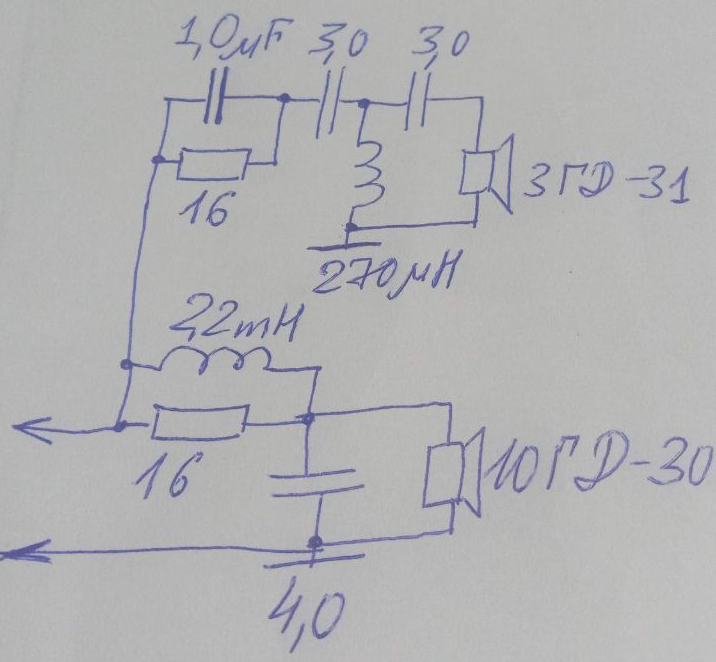 1,0μF 3,0 3,0
16
3ГД-31
270μH
2,2mH
16
10ГД-30
4,0